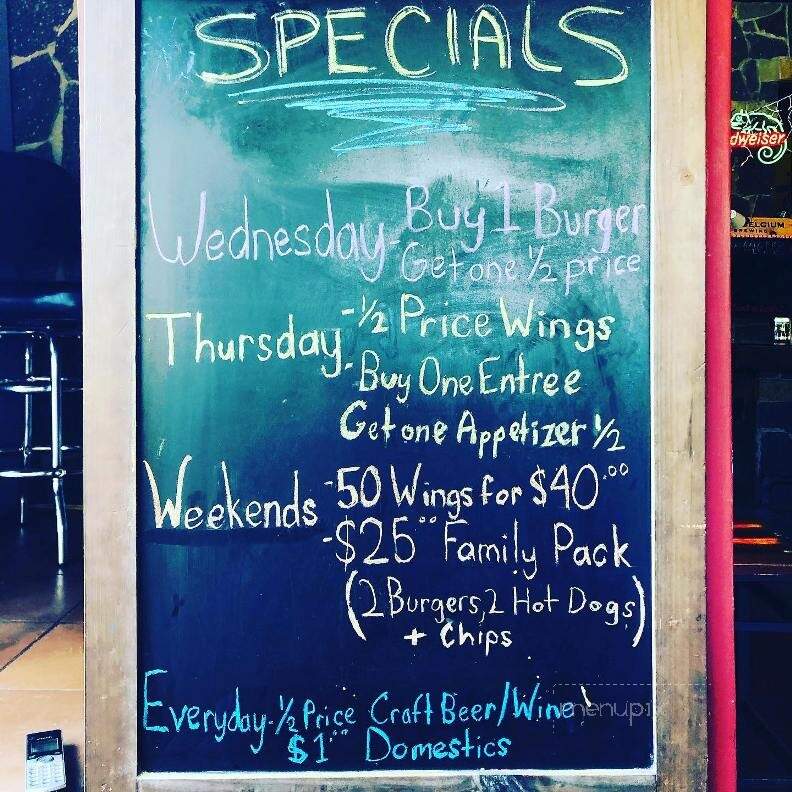 SPECIALS
Wednesday - Buy 1 Burger
Get one 1/2 price
Thursday - 1/2 Price Wings
- Buy One Entree
Get one Appetizer 1/2
Weekends - 50 Wings for $40.00
- $25.00 Family Pack
(2 Burgers, 2 Hot Dogs)
+ Chips
Everyday - 1/2 Price Craft Beer/Wine
$1.00 Domestics
dweiser
ELGIUM
menupix